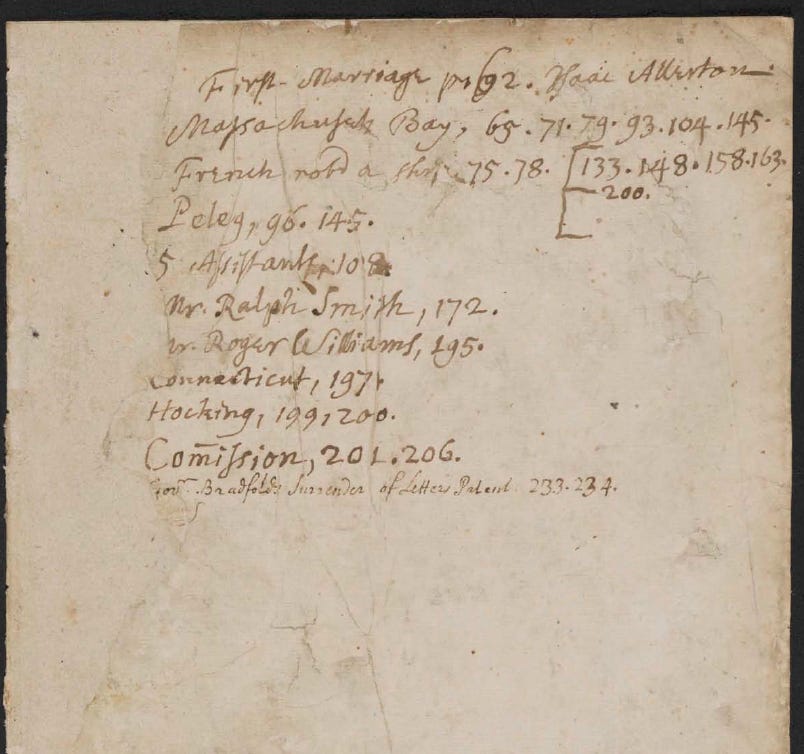 First Marriage p. 62. Isaac Allerton
Maſsachuſets Bay, 65. 71. 79. 93. 104. 145.
French rob'd a 75. 78. [133. 148. 158. 163.
200.
Peleg, 96. 145.
5 Aſsiſtants, 108.
Mr. Ralph Smith, 172.
Mr. Roger Williams, 195.
Connecticut, 197.
Hocking, 199, 200.
Com̄iſsion, 201. 206.
Govr. Bradfords Surrender of Letters Patent 233. 234.